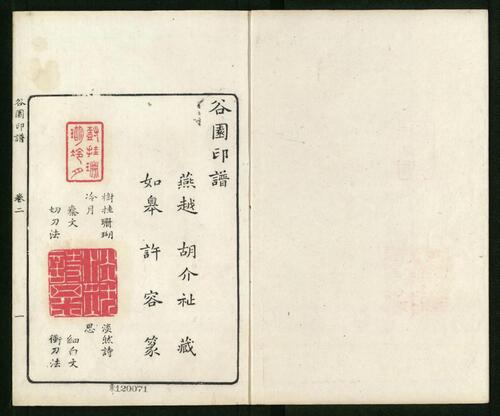 谷園印譜
燕越胡介祉藏
如皋許容篆
樹挂珊瑚
冷月
秦文
切刀法
淡然詩
思
細白文
衝刀法
谷園印譜
卷二
一
120071